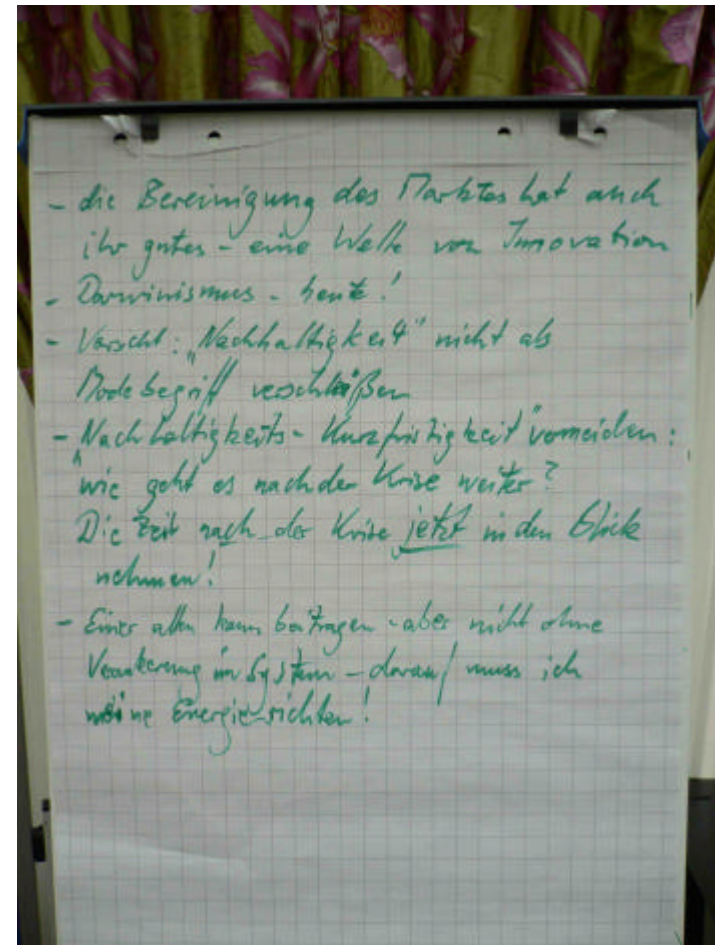 - die Bereinigung des Marktes hat auch
ihr gutes - eine Welle von Innovation
- Darwinismus - heute!
- Vorsicht: „Nachhaltigkeit" nicht als
Modebegriff verschleißen
- „Nachhaltigkeits-Kurzfristigkeit" vermeiden:
wie geht es nach der Krise weiter?
Die Zeit nach der Krise jetzt in den Blick
nehmen!
- Einer allein kann beitragen - aber nicht ohne
Verankerung im System - darauf muss ich
meine Energie richten!